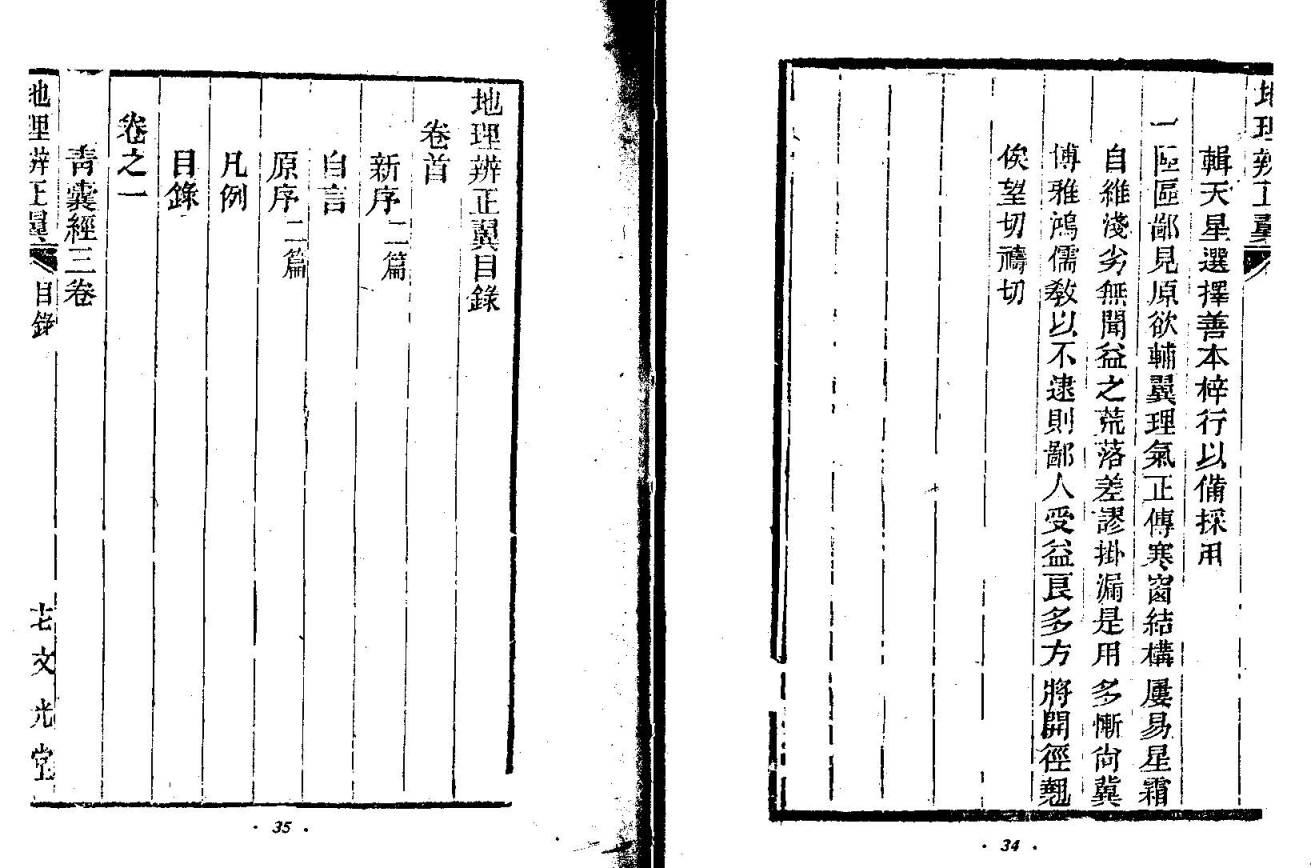 地理辨正翼
輯天星選擇善本梓行以備採用
一區區鄙見原欲輔翼理氣正傳寒窗結構屢易星霜
自維淺劣無聞益之荒落差謬掛漏是用多慚尙冀
博雅鴻儒敎以不逮則鄙人受益良多方將開徑翹
俟望切禱切
· 34 ·
地理辨正翼目錄
卷首
新序二篇
自言
原序二篇
凡例
目錄
卷之一
靑囊經三卷
地理辨正翼 目錄 文光堂
· 35 ·